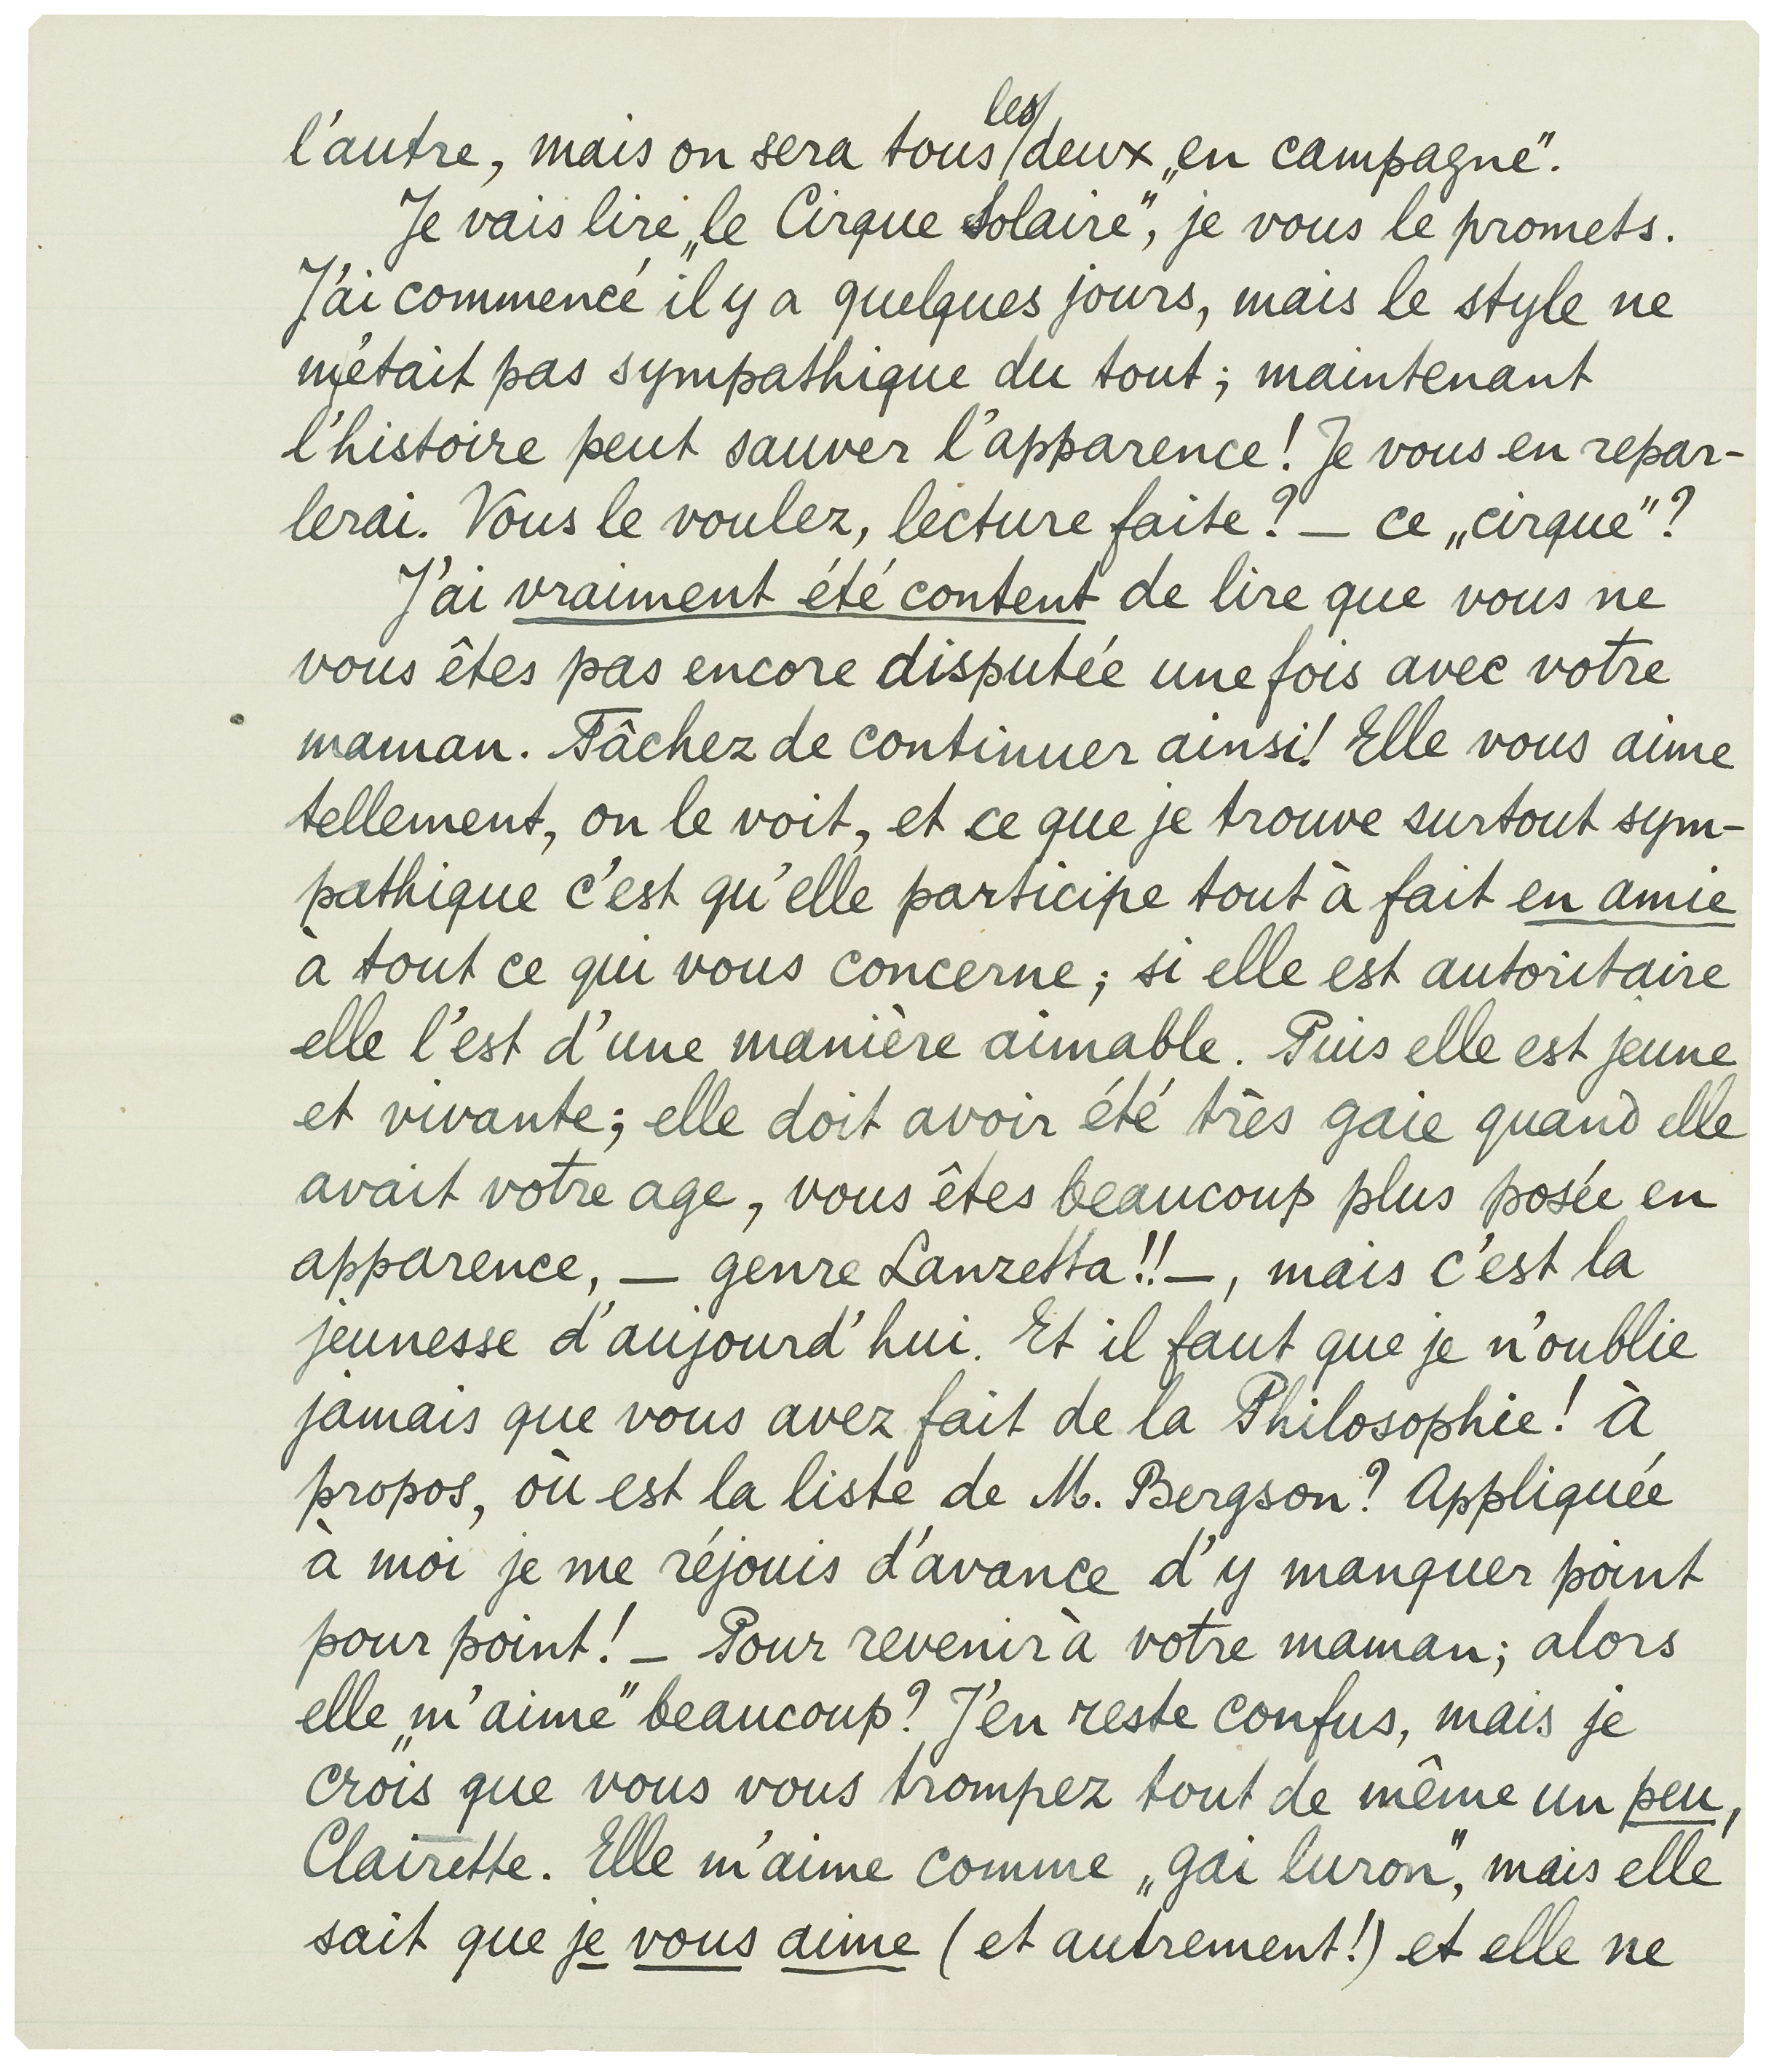 l'autre, mais on sera tous les deux „en campagne".
Je vais lire „le Cirque Solaire", je vous le promets.
J'ai commencé il y a quelques jours, mais le style ne
m'était pas sympathique du tout; maintenant
l'histoire peut sauver l'apparence! Je vous en repar-
lerai. Vous le voulez, lecture faite? — ce „cirque"?
J'ai vraiment été content de lire que vous ne
vous êtes pas encore disputée une fois avec votre
maman. Tâchez de continuer ainsi! Elle vous aime
tellement, on le voit, et ce que je trouve surtout sym-
pathique c'est qu'elle participe tout à fait en amie
à tout ce qui vous concerne; si elle est autoritaire
elle l'est d'une manière aimable. Puis elle est jeune
et vivante; elle doit avoir été très gaie quand elle
avait votre age, vous êtes beaucoup plus posée en
apparence, — genre Lanzetta!! —, mais c'est la
jeunesse d'aujourd'hui. Et il faut que je n'oublie
jamais que vous avez fait de la Philosophie! À
propos, où est la liste de M. Bergson? Appliquée
à moi je me réjouis d'avance d'y manquer point
pour point! — Pour revenir à votre maman; alors
elle „m'aime" beaucoup? J'en reste confus, mais je
crois que vous vous trompez tout de même un peu,
Clairette. Elle m'aime comme „gai luron", mais elle
sait que je vous aime (et autrement!) et elle ne